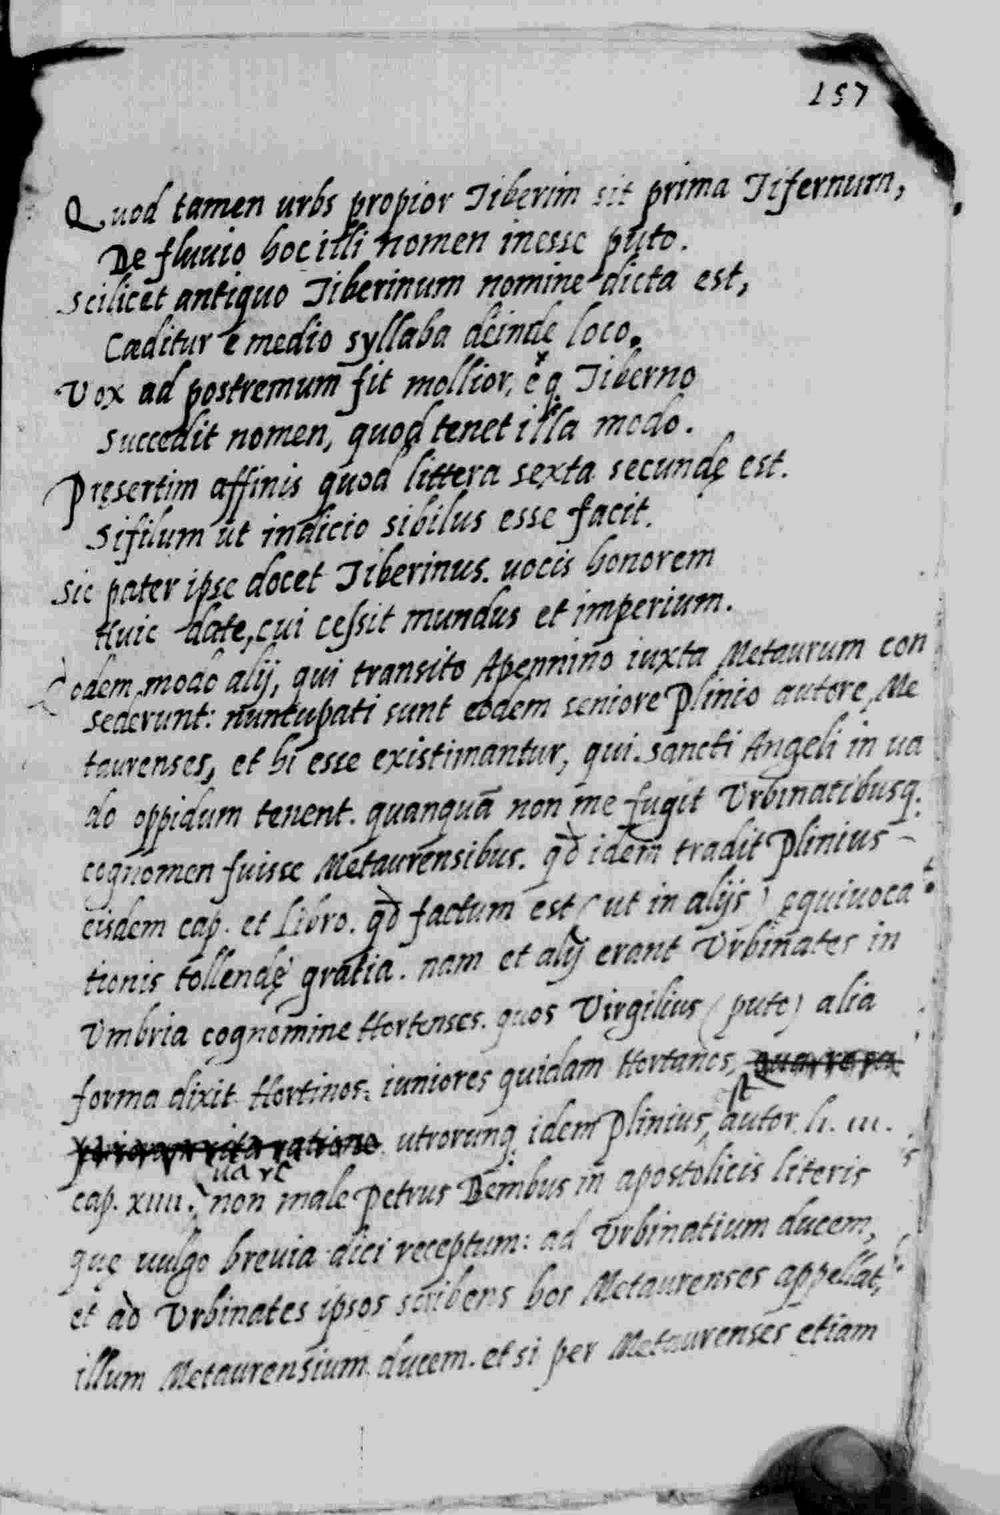 157
Quod tamen urbs propior Tiberim sit prima Tifernum,
De fluuio hoc illi nomen inesse puto.
Scilicet antiquo Tiberinum nomine dicta est,
Cæditur e medio syllaba deinde loco.
Vox ad postremum fit mollior, eq. Tiberno
Succedit nomen, quod tenet illa modo.
Pręsertim affinis quod littera sexta secundę est.
Sifilum ut indicio sibilus esse facit.
Sic pater ipse docet Tiberinus. uocis honorem
Huic date, cui cessit mundus et imperium.
Eodem modo alij, qui transito Apennino iuxta Metaurum con
sederunt: nuncupati sunt eodem seniore Plinio autore Me
taurenses, et hi esse existimantur, qui sancti Angeli in ua
do oppidum tenent. quanquā non me fugit Vrbinatibusq.
cognomen fuisse Metaurensibus. qđ idem tradit Plinius
eisdem cap. et Libro. qđ factum est (ut in alijs) ęquiuoca
tionis tollendę gratia. nam et alij erant Vrbinates in
Vmbria cognomine Hortenses. quos Virgilius (puto) alia
forma dixit Hortinos: iuniores quidam Hortanos,
utrorunq. idem Plinius, autor. li. iii.
st
cap. xiiii. non male Petrus Bembus in apostolicis literis
uare
quę uulgo breuia dici receptum: ad Vrbinatium ducem,
et ad Vrbinates ipsos scribens hos Metaurenses appellat,
illum Metaurensium ducem. et si per Metaurenses etiam